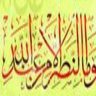 وما النصر إلا من عند الله